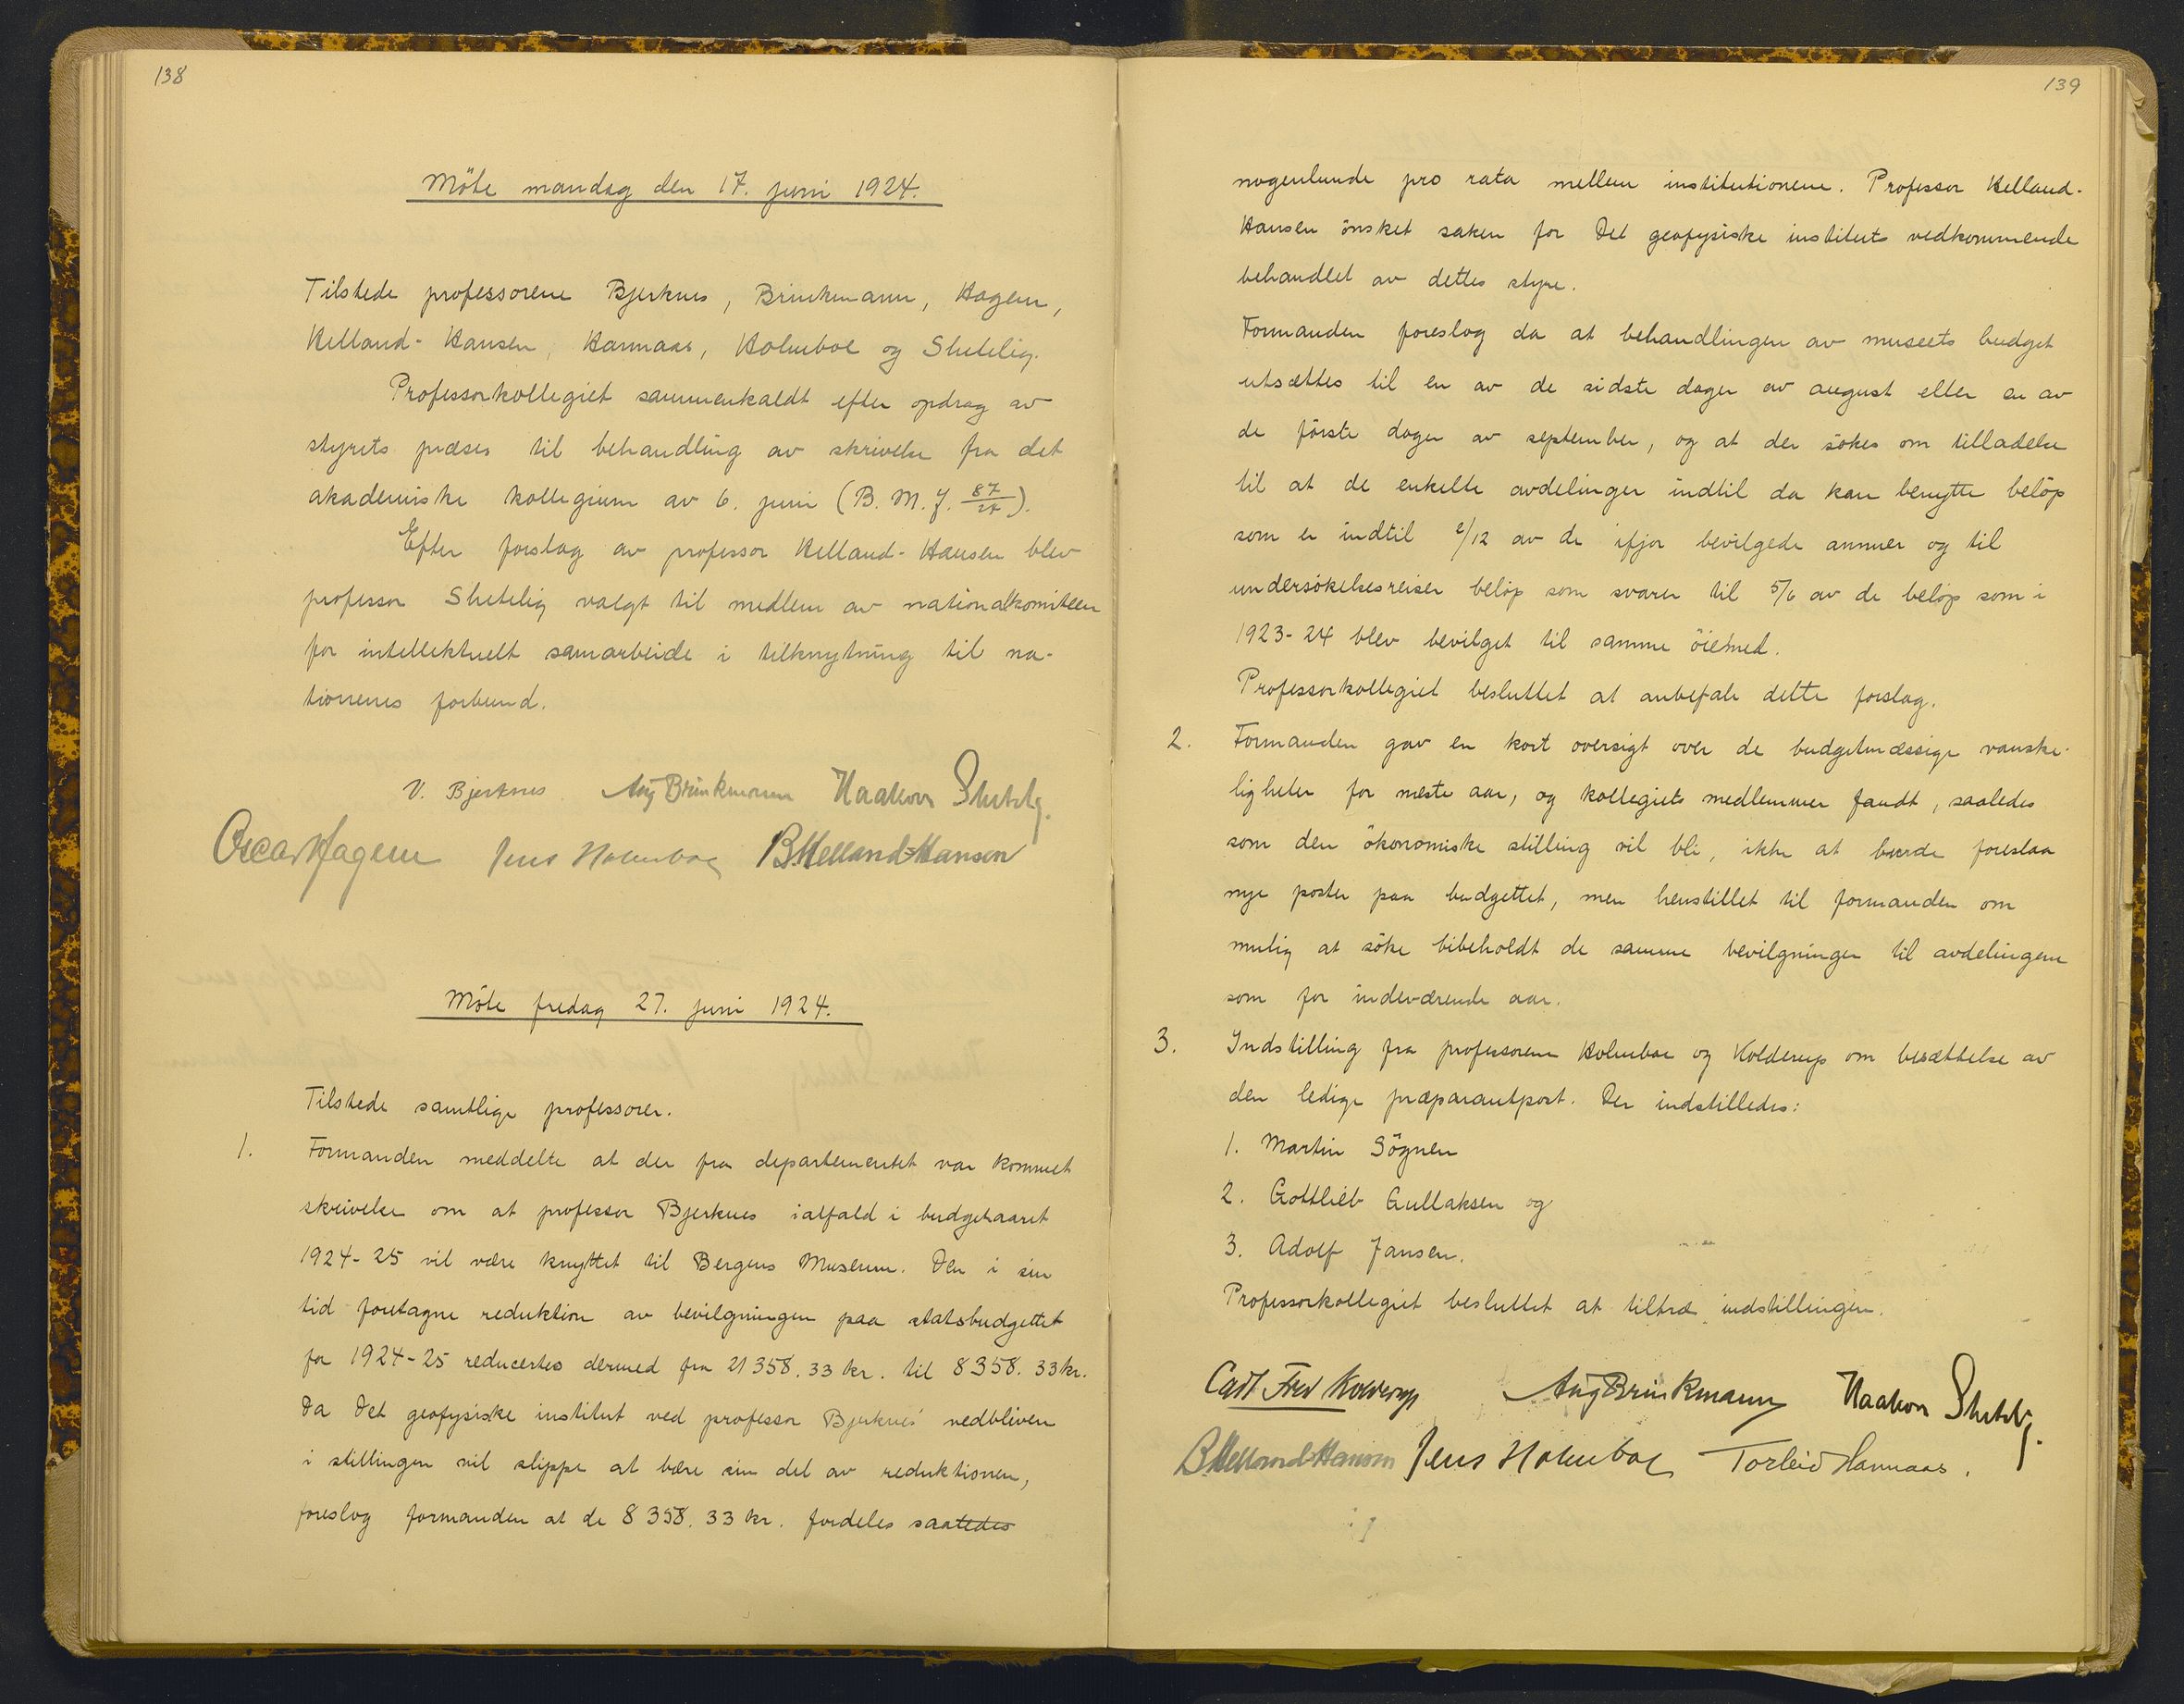 138
Möte mandag den 17. juni 1924.
Tilstede professorene Bjerknes, Brinkmann, Hagem,
Helland-Hansen, Hannaas, Holmboe og Shetelig.
Professorkollegiet sammenkaldt efter opdrag av
styrets præses til behandling av skrivelse fra det
akademiske kollegium av 6. juni (B. M. J. 87/24).
Efter forslag av professor Helland-Hansen blev
professor Shetelig valgt til medlem av nationalkomiteen
for intellektuelt samarbeide i tilknytning til na-
tionenes forbund.
V. Bjerknes. Aug Brinkmann Haakon Shetelig.
Oscar Hagem Jens Holmboe B Helland-Hansen
Möte fredag 27. juni 1924.
Tilstede samtlige professorer.
1. Formanden meddelte at der fra departementet var kommet
skrivelse om at professor Bjerknes ialfald i budgetaaret
1924-25 vil være knyttet til Bergens Museum. Den i sin
tid foretagne reduktion av bevilgningen paa statsbudgettet
for 1924-25 reducertes dermed fra 21 358.33 kr. til 8 358.33 kr.
Da Det geofysiske institut ved professor Bjerknes' vedbliven
i stillingen vil slippe at bære sin del av reduktionen,
foreslog formanden at de 8 358.33 kr. fordeles saaledes
139
nogenlunde pro rata mellem institutionene. Professor Helland-
Hansen önsket saken for Det geofysiske instituts vedkommende
behandlet av dettes styre.
Formanden foreslog da at behandlingen av museets budget
utsættes til en av de sidste dager av august eller en av
de förste dager av september, og at der sökes om tilladelse
til at de enkelte avdelinger indtil da kan benytte belöp
som er indtil 2/12 av de ifjor bevilgede annuer og til
undersökelsesreiser belöp som svarer til 5/6 av de belöp som i
1923-24 blev bevilget til samme öiemed.
Professorkollegiet besluttet at anbefale dette forslag.
2. Formanden gav en kort oversigt over de budgetmæssige vanske-
ligheter for næste aar, og kollegiets medlemmer fandt, saaledes
som den ökonomiske stilling vil bli, ikke at burde foreslaa
nye poster paa budgettet, men henstillet til formanden om
mulig at söke bibeholdt de samme bevilgninger til avdelingene
som for indeværende aar.
3. Indstilling fra professorene Holmboe og Kolderup om besættelse av
den ledige præparantpost. Der indstilledes:
1. Martin Sögnen
2. Gottlieb Gullaksen og
3. Adolf Jansen.
Professorkollegiet besluttet at tiltræ indstillingen.
Carl Fred Kolderup Aug Brinkmann Haakon Shetelig.
B Helland-Hansen Jens Holmboe Torleiv Hannaas.